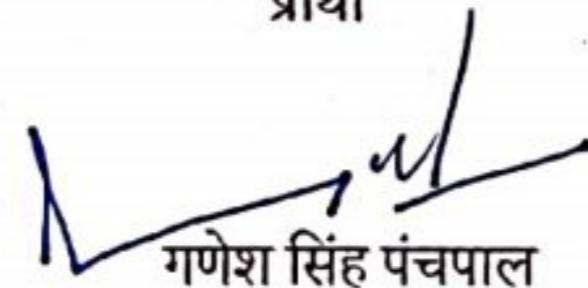 प्रार्थी
गणेश सिंह पंचपाल